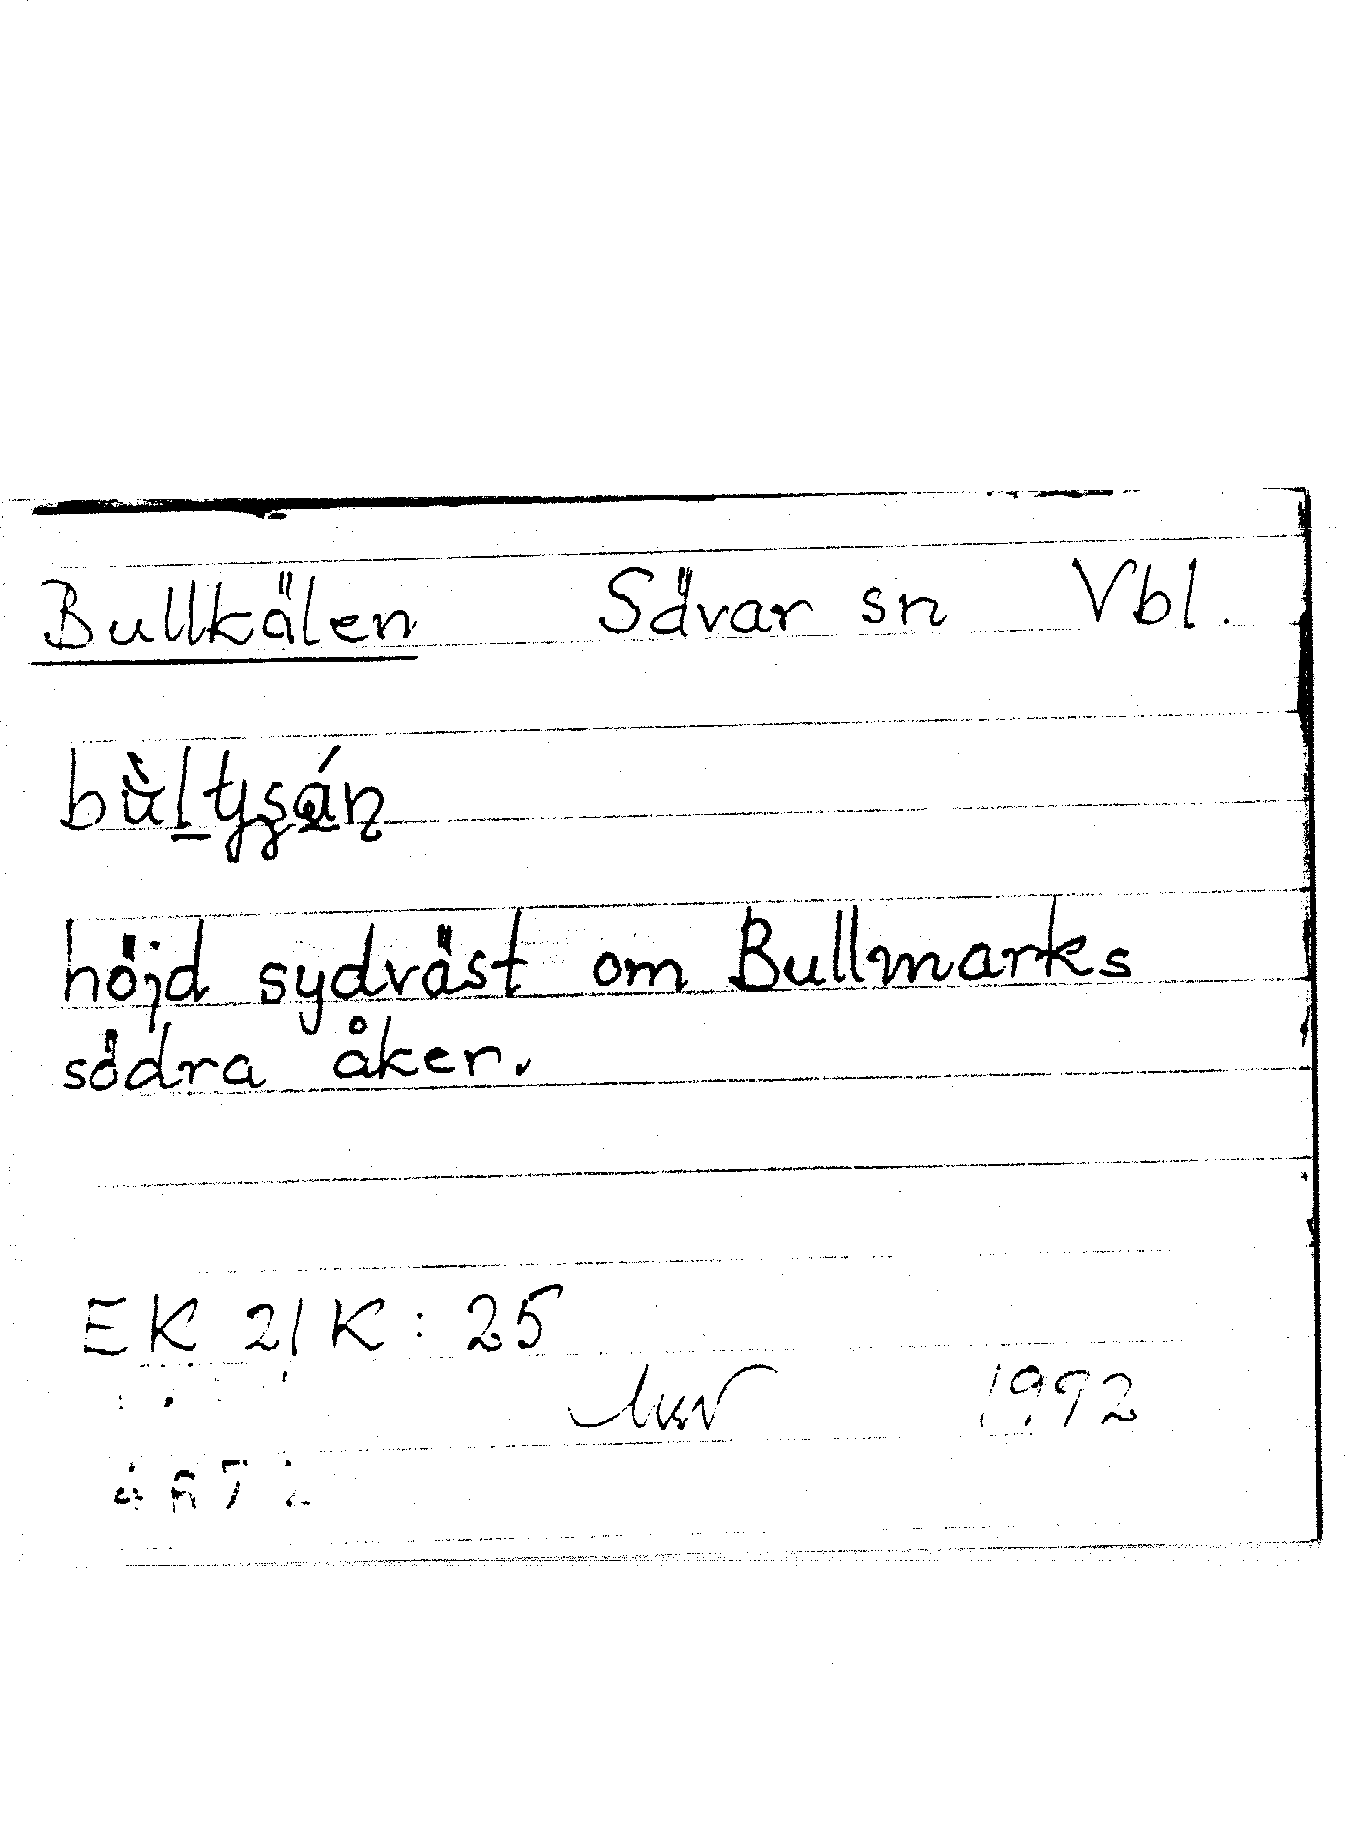 Bullkälen Sävar sn Vbl.
höjd sydväst om Bullmarks
södra åker.
EK 21K:25
1992